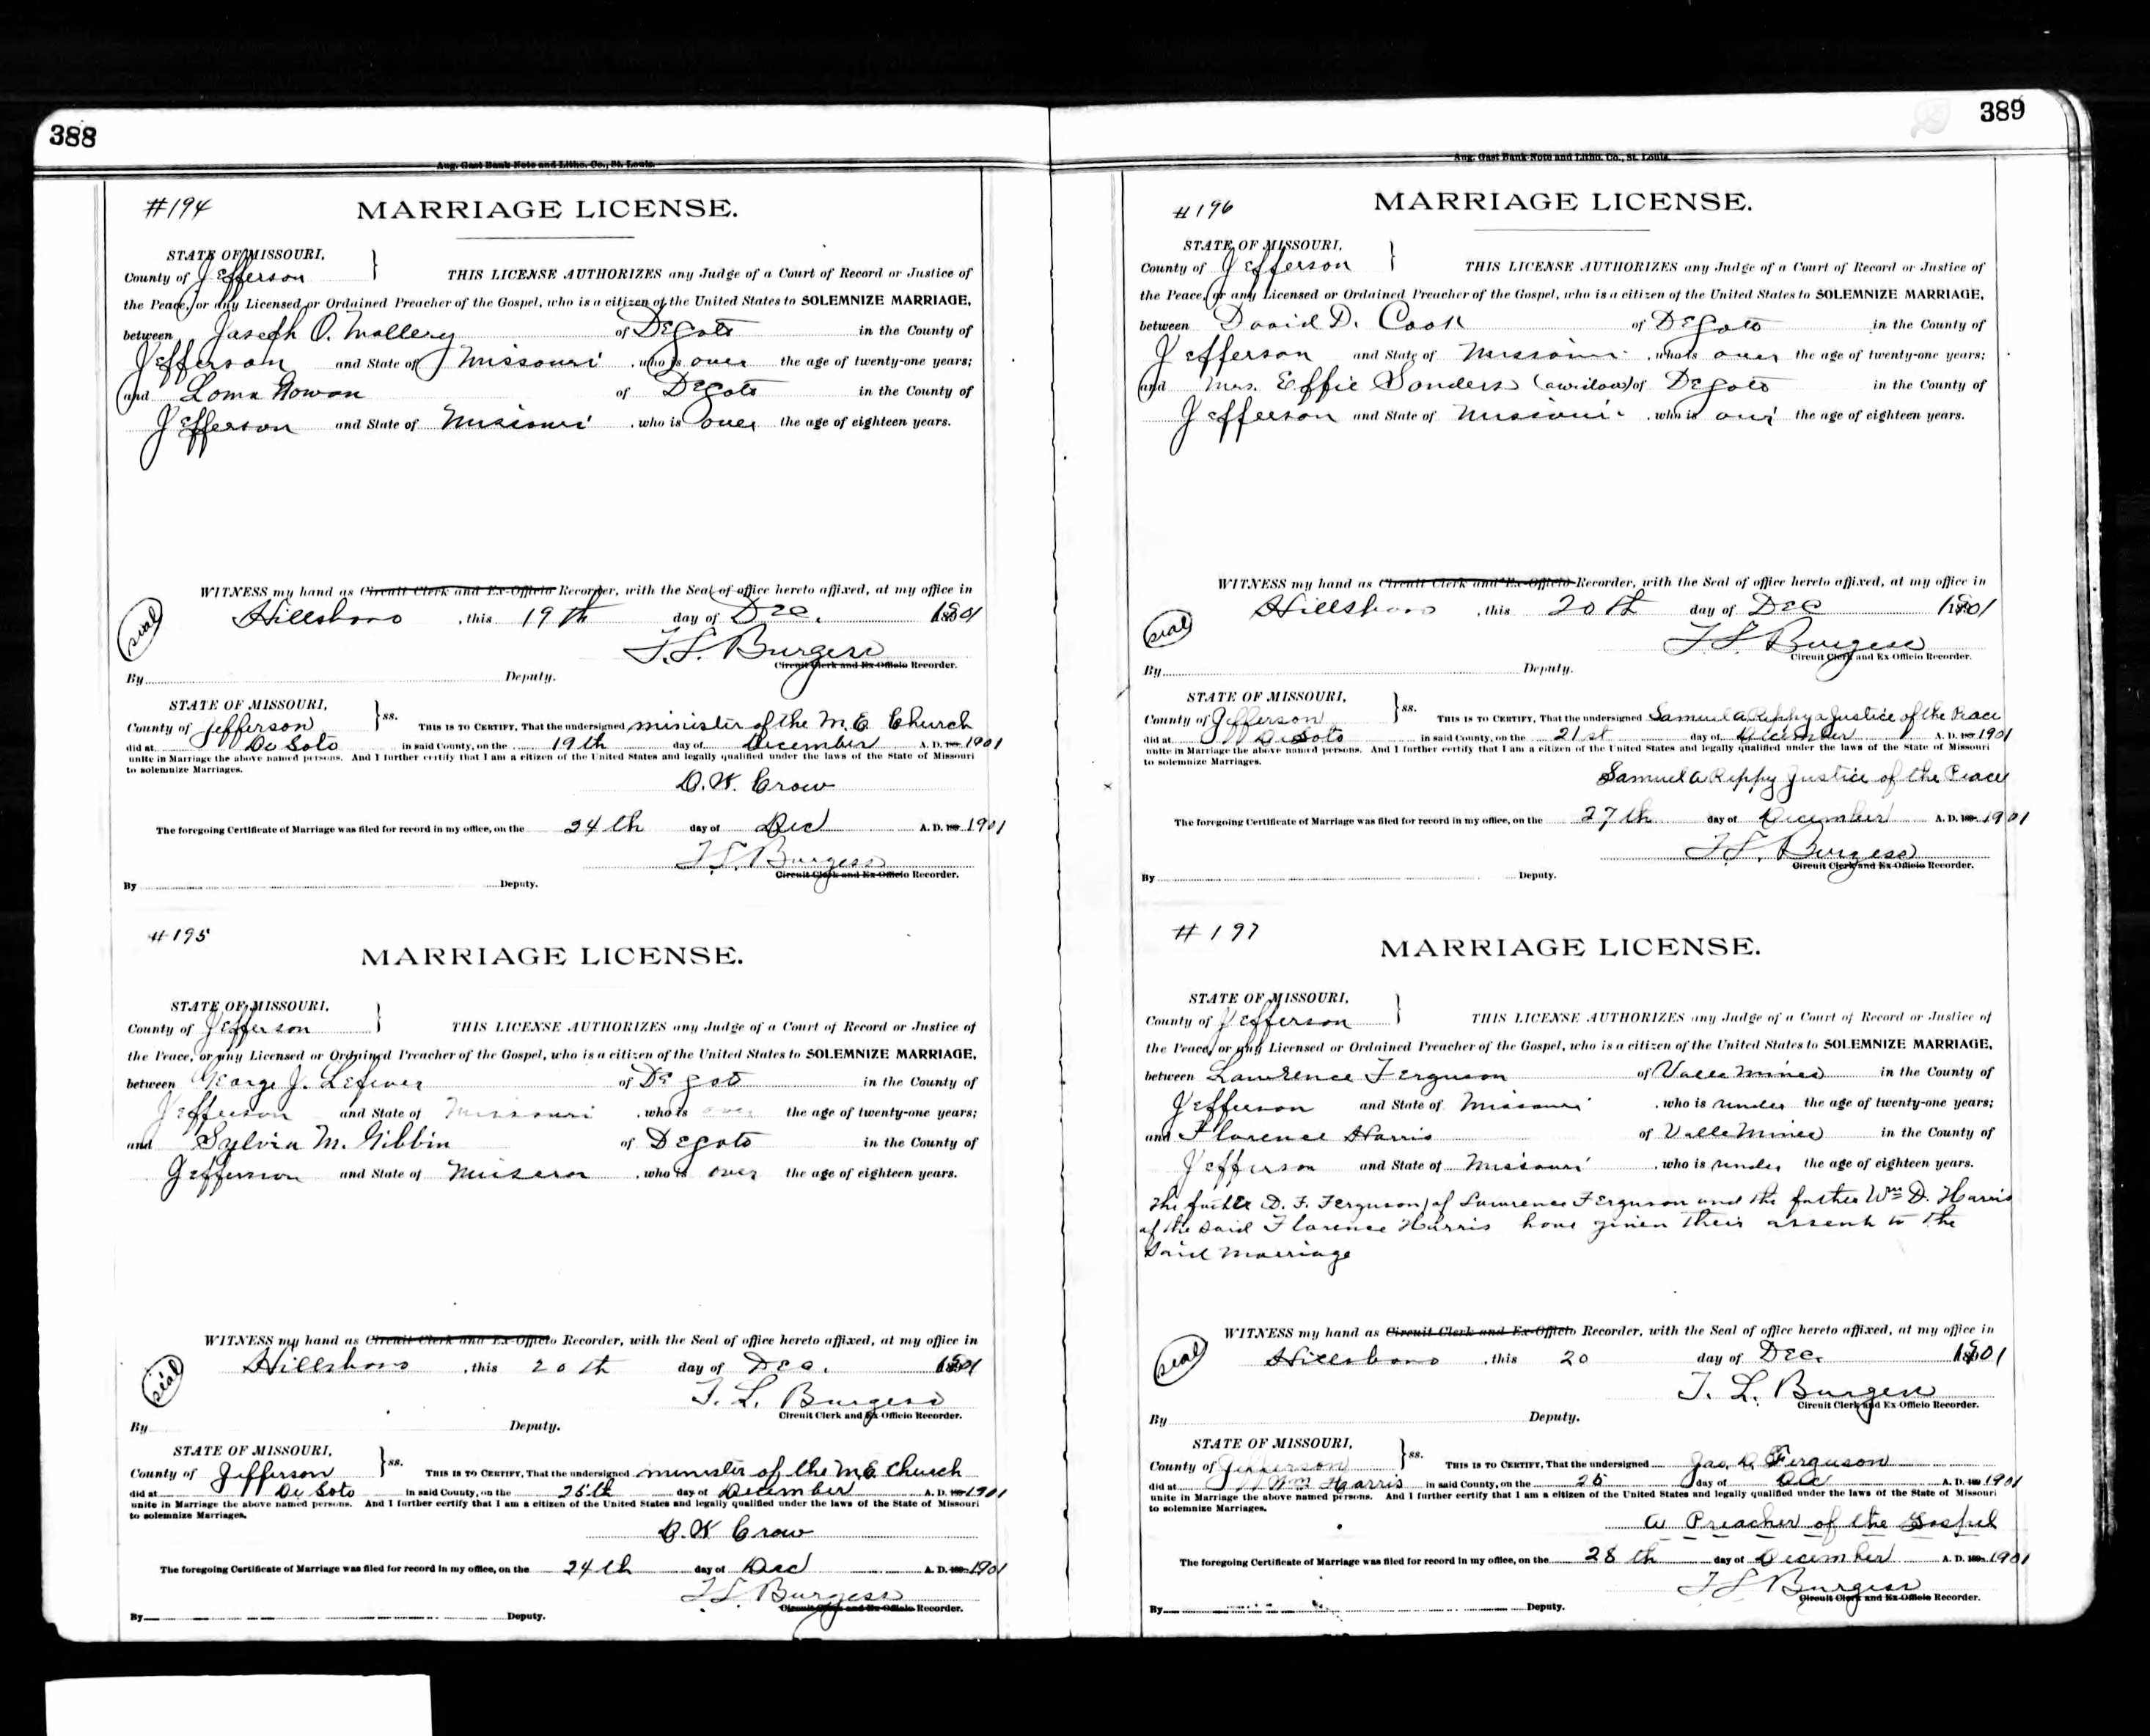 388
Aug. Gast Bank Note and Litho. Co., St. Louis.
#194
MARRIAGE LICENSE.
STATE OF MISSOURI,
County of Jefferson } THIS LICENSE AUTHORIZES any Judge of a Court of Record or Justice of
the Peace, or any Licensed or Ordained Preacher of the Gospel, who is a citizen of the United States to SOLEMNIZE MARRIAGE,
between Joseph O. Mallery of DeSoto in the County of
Jefferson and State of Missouri, who is over the age of twenty-one years;
and Loma Gowan of DeSoto in the County of
Jefferson and State of Missouri, who is over the age of eighteen years.
WITNESS my hand as Circuit Clerk and Ex-Officio Recorder, with the Seal of office hereto affixed, at my office in
seal
Hillsboro, this 19th day of Dec. 1901
T. L. Burgess
Circuit Clerk and Ex-Officio Recorder.
By Deputy.
STATE OF MISSOURI,
County of Jefferson } ss. THIS IS TO CERTIFY, That the undersigned minister of the M. E. Church
did at De Soto in said County, on the 19th day of December A. D. 1901
unite in Marriage the above named persons. And I further certify that I am a citizen of the United States and legally qualified under the laws of the State of Missouri
to solemnize Marriages.
O. W. Crow
The foregoing Certificate of Marriage was filed for record in my office, on the 24th day of Dec A. D. 1901
T. L. Burgess
Circuit Clerk and Ex-Officio Recorder.
By Deputy.
#195
MARRIAGE LICENSE.
STATE OF MISSOURI,
County of Jefferson } THIS LICENSE AUTHORIZES any Judge of a Court of Record or Justice of
the Peace, or any Licensed or Ordained Preacher of the Gospel, who is a citizen of the United States to SOLEMNIZE MARRIAGE,
between George J. Lefever of DeSoto in the County of
Jefferson and State of Missouri, who is over the age of twenty-one years;
and Sylvia M. Gibbin of DeSoto in the County of
Jefferson and State of Missouri, who is over the age of eighteen years.
WITNESS my hand as Circuit Clerk and Ex-Officio Recorder, with the Seal of office hereto affixed, at my office in
seal
Hillsboro, this 20th day of Dec. 1901
T. L. Burgess
Circuit Clerk and Ex-Officio Recorder.
By Deputy.
STATE OF MISSOURI,
County of Jefferson } ss. THIS IS TO CERTIFY, That the undersigned minister of the M. E. Church
did at De Soto in said County, on the 25th day of December A. D. 1901
unite in Marriage the above named persons. And I further certify that I am a citizen of the United States and legally qualified under the laws of the State of Missouri
to solemnize Marriages.
O. W. Crow
The foregoing Certificate of Marriage was filed for record in my office, on the 24th day of Dec A. D. 1901
T. L. Burgess
Circuit Clerk and Ex-Officio Recorder.
By Deputy.
389
Aug. Gast Bank Note and Litho. Co., St. Louis.
#196
MARRIAGE LICENSE.
STATE OF MISSOURI,
County of Jefferson } THIS LICENSE AUTHORIZES any Judge of a Court of Record or Justice of
the Peace, or any Licensed or Ordained Preacher of the Gospel, who is a citizen of the United States to SOLEMNIZE MARRIAGE,
between David D. Cook of DeSoto in the County of
Jefferson and State of Missouri, who is over the age of twenty-one years;
and Mrs. Effie Sanders (a widow) of DeSoto in the County of
Jefferson and State of Missouri, who is over the age of eighteen years.
WITNESS my hand as Circuit Clerk and Ex-Officio Recorder, with the Seal of office hereto affixed, at my office in
seal
Hillsboro, this 20th day of Dec 1901
T. L. Burgess
Circuit Clerk and Ex Officio Recorder.
By Deputy.
STATE OF MISSOURI,
County of Jefferson } ss. THIS IS TO CERTIFY, That the undersigned Samuel A Reppy a Justice of the Peace
did at DeSoto in said County, on the 21st day of December A. D. 1901
unite in Marriage the above named persons. And I further certify that I am a citizen of the United States and legally qualified under the laws of the State of Missouri
to solemnize Marriages.
Samuel A Reppy Justice of the Peace
The foregoing Certificate of Marriage was filed for record in my office, on the 27th day of December A. D. 1901
T. L. Burgess
Circuit Clerk and Ex-Officio Recorder.
By Deputy.
#197
MARRIAGE LICENSE.
STATE OF MISSOURI,
County of Jefferson } THIS LICENSE AUTHORIZES any Judge of a Court of Record or Justice of
the Peace, or any Licensed or Ordained Preacher of the Gospel, who is a citizen of the United States to SOLEMNIZE MARRIAGE,
between Lawrence Ferguson of Valle Mines in the County of
Jefferson and State of Missouri, who is under the age of twenty-one years;
and Florence Harris of Valle Mines in the County of
Jefferson and State of Missouri, who is under the age of eighteen years.
The father (D. F. Ferguson) of Lawrence Ferguson and the father Wm D. Harris
of the said Florence Harris have given their assent to the
said marriage
WITNESS my hand as Circuit Clerk and Ex-Officio Recorder, with the Seal of office hereto affixed, at my office in
seal
Hillsboro, this 20 day of Dec. 1901
T. L. Burgess
Circuit Clerk and Ex Officio Recorder.
By Deputy.
STATE OF MISSOURI,
County of Jefferson } ss. THIS IS TO CERTIFY, That the undersigned Jas. Ferguson
did at Wm Harris in said County, on the 25 day of Dec A. D. 1901
unite in Marriage the above named persons. And I further certify that I am a citizen of the United States and legally qualified under the laws of the State of Missouri
to solemnize Marriages.
A Preacher of the Gospel
The foregoing Certificate of Marriage was filed for record in my office, on the 28th day of December A. D. 1901
T. L. Burgess
Circuit Clerk and Ex-Officio Recorder.
By Deputy.